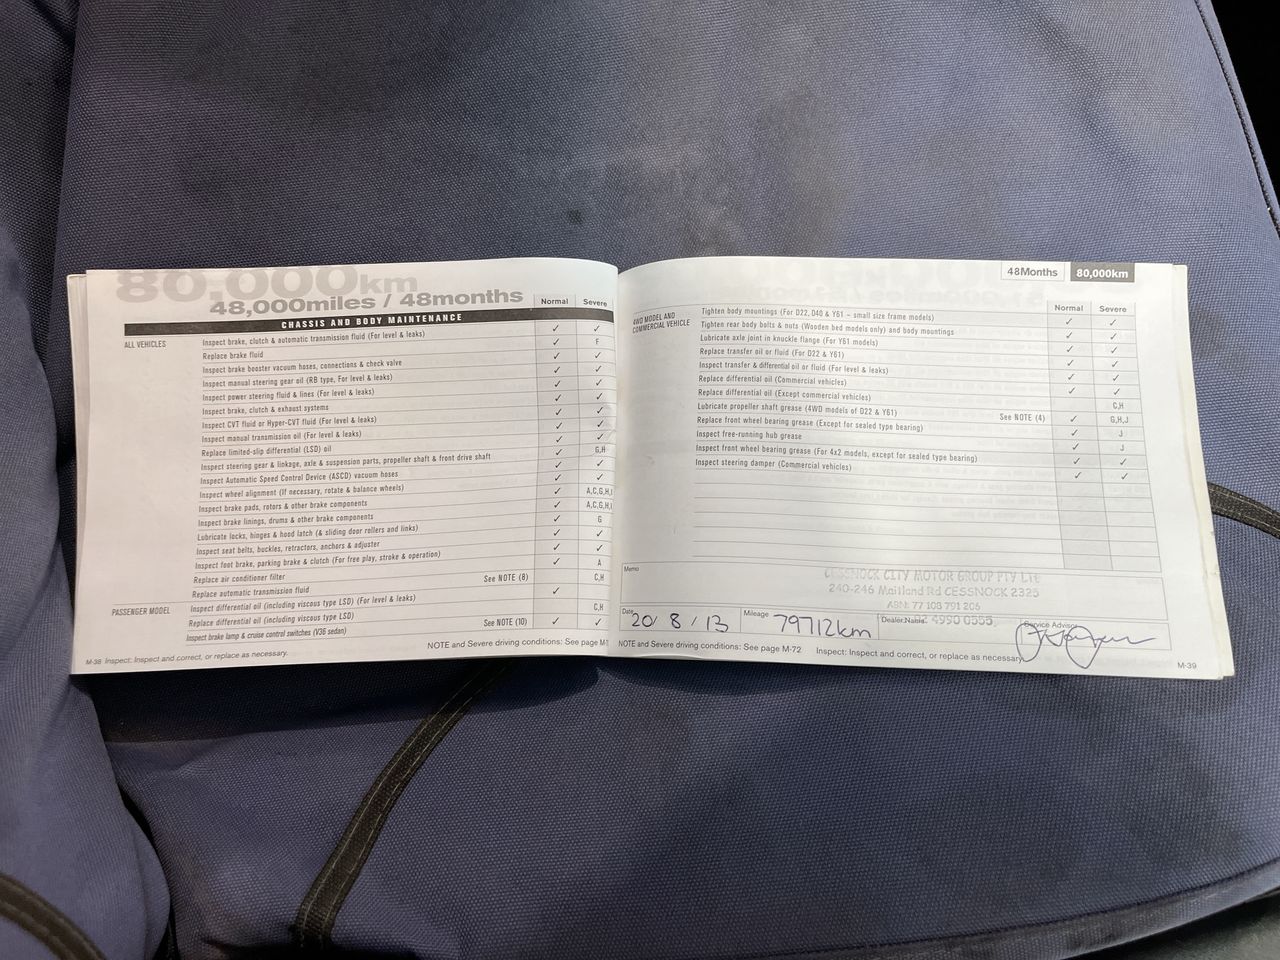 80,000km
48,000miles / 48months
Normal Severe
CHASSIS AND BODY MAINTENANCE
ALL VEHICLES
Inspect brake, clutch & automatic transmission fluid (For level & leaks) ✓ ✓
Replace brake fluid ✓ F
Inspect brake booster vacuum hoses, connections & check valve ✓ ✓
Inspect manual steering gear oil (RB type, For level & leaks) ✓ ✓
Inspect power steering fluid & lines (For level & leaks) ✓ ✓
Inspect brake, clutch & exhaust systems ✓ ✓
Inspect CVT fluid or Hyper-CVT fluid (For level & leaks) ✓ ✓
Inspect manual transmission oil (For level & leaks) ✓ ✓
Replace limited-slip differential (LSD) oil ✓ ✓
Inspect steering gear & linkage, axle & suspension parts, propeller shaft & front drive shaft ✓ G,H
Inspect Automatic Speed Control Device (ASCD) vacuum hoses ✓ ✓
Inspect wheel alignment (If necessary, rotate & balance wheels) ✓ ✓
Inspect brake pads, rotors & other brake components ✓ A,C,G,H,I
Inspect brake linings, drums & other brake components ✓ A,C,G,H,I
Lubricate locks, hinges & hood latch (& sliding door rollers and links) ✓ G
Inspect seat belts, buckles, retractors, anchors & adjuster ✓ ✓
Inspect foot brake, parking brake & clutch (For free play, stroke & operation) ✓ ✓
Replace air conditioner filter ✓ A
Replace automatic transmission fluid See NOTE (8) C,H
PASSENGER MODEL
Inspect differential oil (including viscous type LSD) (For level & leaks) ✓
Replace differential oil (including viscous type LSD) C,H
Inspect brake lamp & cruise control switches (V36 sedan) See NOTE (10) ✓ ✓
M-38 Inspect: Inspect and correct, or replace as necessary.
NOTE and Severe driving conditions: See page M-7
48Months 80,000km
Normal Severe
4WD MODEL AND
COMMERCIAL VEHICLE
Tighten body mountings (For D22, D40 & Y61 – small size frame models) ✓ ✓
Tighten rear body bolts & nuts (Wooden bed models only) and body mountings ✓ ✓
Lubricate axle joint in knuckle flange (For Y61 models) ✓ ✓
Replace transfer oil or fluid (For D22 & Y61) ✓ ✓
Inspect transfer & differential oil or fluid (For level & leaks) ✓ ✓
Replace differential oil (Commercial vehicles) ✓ ✓
Replace differential oil (Except commercial vehicles) C,H
Lubricate propeller shaft grease (4WD models of D22 & Y61) See NOTE (4) ✓ G,H,J
Replace front wheel bearing grease (Except for sealed type bearing) ✓ J
Inspect free-running hub grease ✓ J
Inspect front wheel bearing grease (For 4x2 models, except for sealed type bearing) ✓ ✓
Inspect steering damper (Commercial vehicles) ✓ ✓
Memo
CESSNOCK CITY MOTOR GROUP PTY LTD
240-246 Maitland Rd CESSNOCK 2325
ABN: 77 103 791 205
Date 20/8/13 Mileage 79712km Dealer Name 4990 0555 Service Advisor
NOTE and Severe driving conditions: See page M-72 Inspect: Inspect and correct, or replace as necessary.
M-39